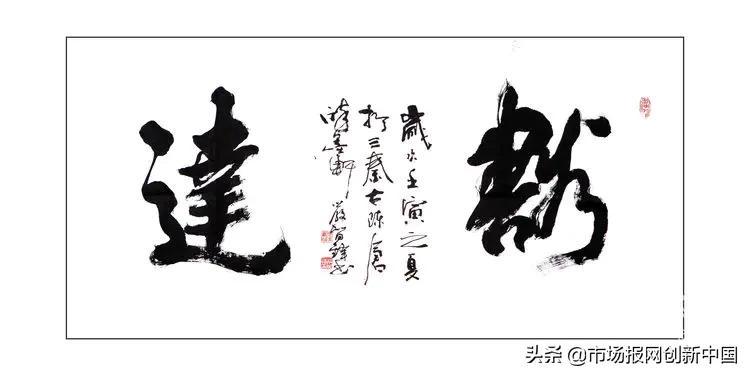 豁
歲次壬寅之夏
於三秦古陳倉
墨軒 嚴智 書
達
头条 @市场报网创新中国